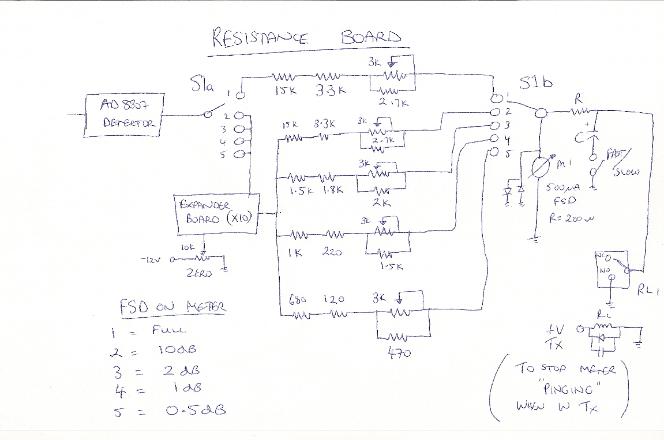 RESISTANCE BOARD
AD 8307
DETECTOR
S1a
1
2
3
4
5
15K
3.3K
3K
2.7K
15K
3.3K
3K
2.7K
1.5K
1.8K
3K
2K
1K
220
3K
1.5K
680
120
3K
470
EXPANDER
BOARD (X10)
-12V
10K
ZERO
S1b
1
2
3
4
5
R
+
C
FAST/
SLOW
M1
FSD
NC
NO
RL1
+V
TX
RL
(TO STOP METER
"PINGING"
WHEN IN TX)
FSD ON METER
1 = FULL
2 = 10dB
3 = 2dB
4 = 1dB
5 = 0.5dB